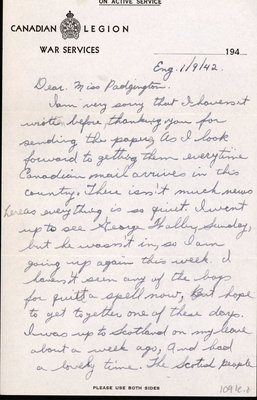 ON ACTIVE SERVICE
CANADIAN LEGION
WAR SERVICES
194
Eng. 1/9/42.
Dear Miss Padgington.
I am very sorry that I havens't
wrote before thanking you for
sending the papers, As I look
forward to getting them everytime
Canadian mail arrives in this
country. There isn't much news
as everything is so quiet. I went
up to see George Sunday,
but he wasn't in, so I am
going up again this week. I
haven't seen any of the boys
for quite a spell now, But hope
to get together one of these days.
I was up to Scotland on my leave
about a week ago, And had
a lovely time. The Scotish people
PLEASE USE BOTH SIDES